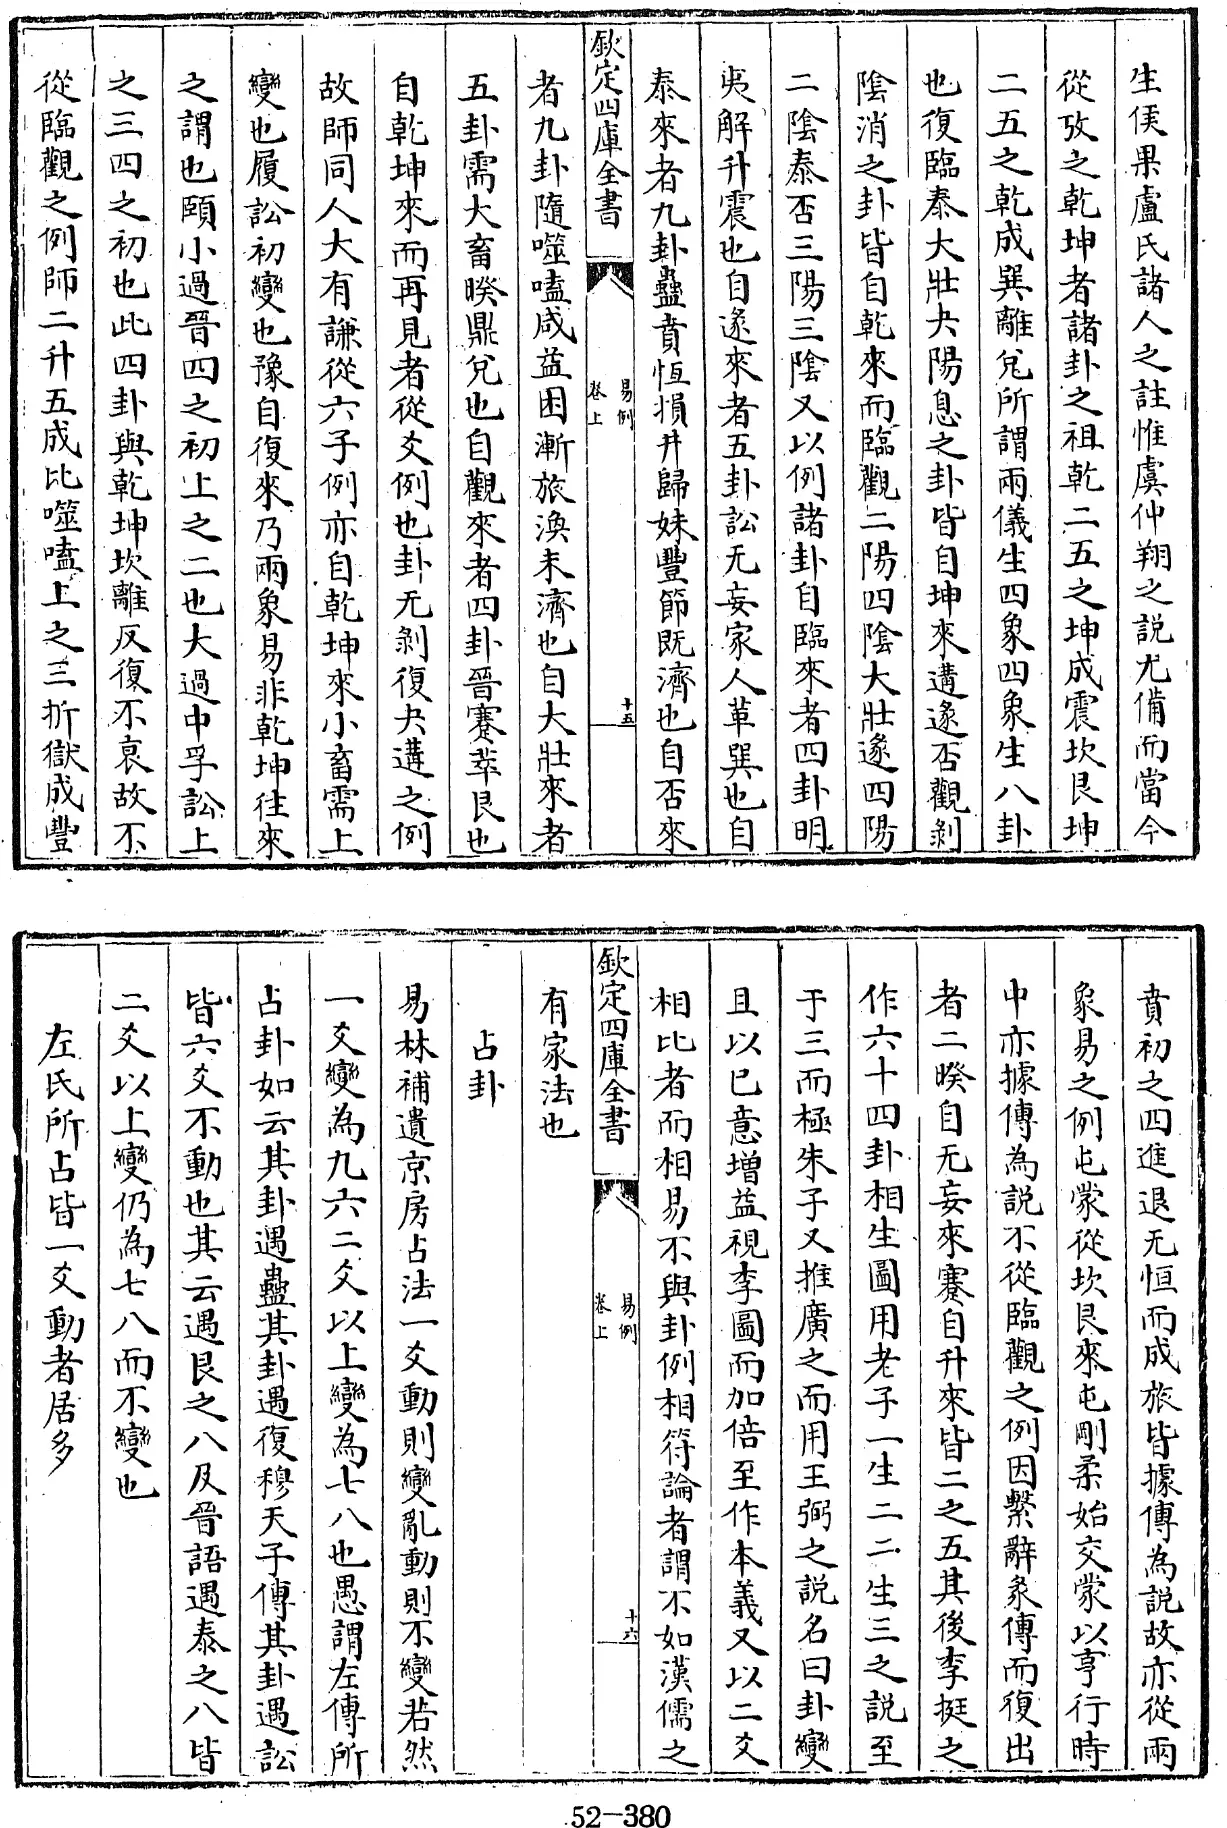 生侯果盧氏諸人之註惟虞仲翔之説尤備而當今
從攷之乾坤者諸卦之祖乾二五之坤成震坎艮坤
二五之乾成巽離兌所謂兩儀生四象四象生八卦
也復臨泰大壯夬陽息之卦皆自坤來遘遂否觀剝
陰消之卦皆自乾來而臨觀二陽四陰大壯遂四陽
二陰泰否三陽三陰又以例諸卦自臨來者四卦明
夷解升震也自遂來者五卦訟无妄家人革巽也自
泰來者九卦蠱賁恆損井歸妹豐節既濟也自否來
欽定四庫全書
易例
卷上
十五
者九卦隨噬嗑咸益困漸旅渙未濟也自大壯來者
五卦需大畜睽鼎兌也自觀來者四卦晉蹇萃艮也
自乾坤來而再見者從爻例也卦无剝復夬遘之例
故師同人大有謙從六子例亦自乾坤來小畜需上
變也履訟初變也豫自復來乃兩象易非乾坤往來
之謂也頤小過晉四之初上之二也大過中孚訟上
之三四之初也此四卦與乾坤坎離反復不衰故不
從臨觀之例師二升五成比噬嗑上之三折獄成豐
賁初之四進退无恒而成旅皆據傳為説故亦從兩
象易之例屯蒙從坎艮來屯剛柔始交蒙以亨行時
中亦據傳為説不從臨觀之例因繫辭彖傳而復出
者二睽自无妄來蹇自升來皆二之五其後李挺之
作六十四卦相生圖用老子一生二二生三之説至
于三而極朱子又推廣之而用王弼之説名曰卦變
且以已意增益視李圖而加倍至作本義又以二爻
相比者而相易不與卦例相符論者謂不如漢儒之
欽定四庫全書
易例
卷上
十六
有家法也
占卦
易林補遺京房占法一爻動則變亂動則不變若然
一爻變為九六二爻以上變為七八也愚謂左傳所
占卦如云其卦遇蠱其卦遇復穆天子傳其卦遇訟
皆六爻不動也其云遇艮之八及晉語遇泰之八皆
二爻以上變仍為七八而不變也
左氏所占皆一爻動者居多
52-380